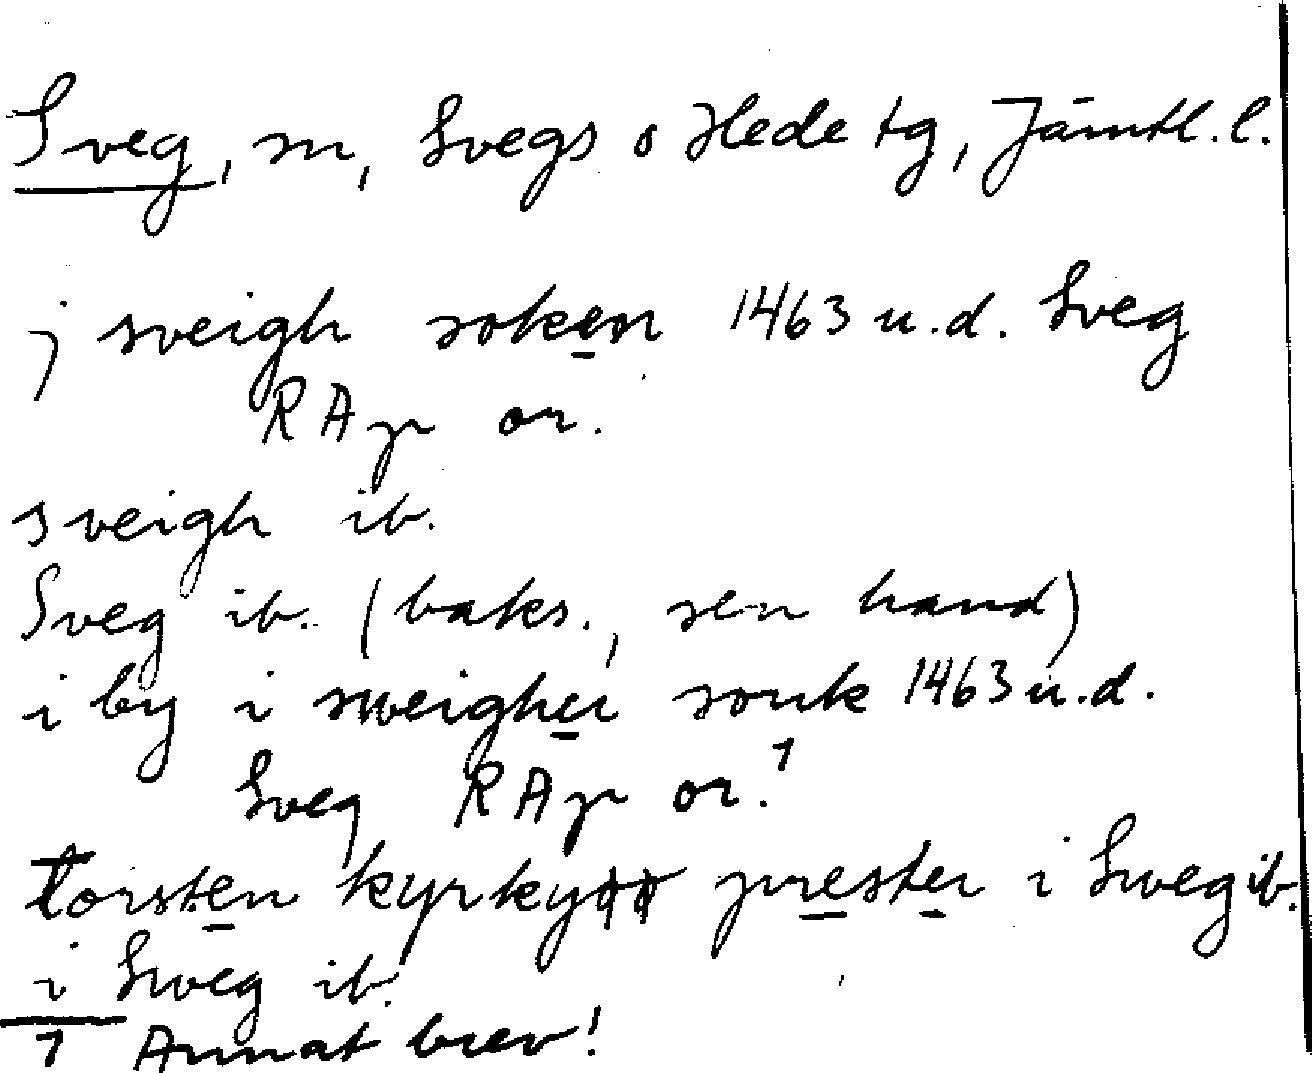 Sveg, sn, Svegs o Hede tg, Jämtl. l.
j sveigh soken 1463 u.d. Sveg
RAp or.
sveigh ib.
Sveg ib. (baks., sen hand)
i by i sweigher sonk 1463 u.d.
Sveg RAp or.¹
Torsten prester i Sweg ib.
i Sweg ib.
1 Annat brev!